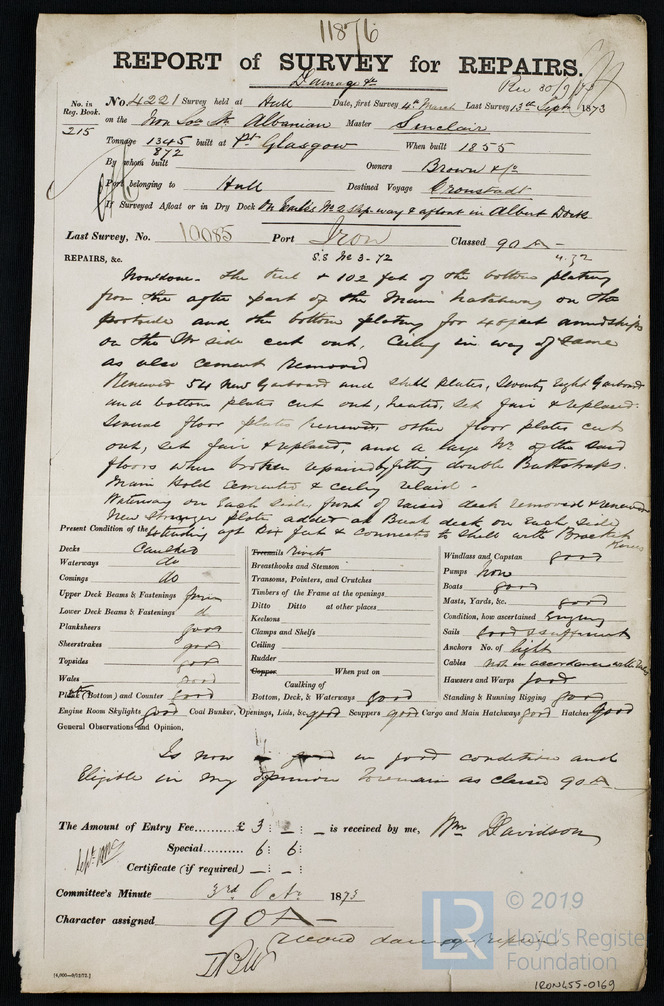 11876
REPORT of SURVEY for REPAIRS.
Damage &c
Rec 30/9/73
No. in Reg. Book. 215
No. 4221 Survey held at Hull Date, first Survey 4th March Last Survey 13th Sept 1873
on the Iron Scw Sr. Albanian Master Sinclair
Tonnage 1345 built at Pt. Glasgow When built 1855
872
By whom built Owners Brown & Co
Port belonging to Hull Destined Voyage Cronstadt
If Surveyed Afloat or in Dry Dock On Earles No 2 slip way & afloat in Albert Dock
Last Survey, No. 10085 Port Iron Classed 90 A
S.S No 3-72 4.72
REPAIRS, &c.
Now done. The keel & 102 feet of the bottom plating
from the after part of the Main hatchway on the
portside and the bottom plating for 48 feet amidships
on the St side cut out, Ceiling in way of same
as also cement removed
Renewed 54 new Garboard and Shell plates, Seventy Eight Garboard
and bottom plates cut out, heated, set fair & replaced.
Several floor plates renewed, other floor plates cut
out, set fair & replaced, and a large No. of the said
floors when broken repaired by fitting double Buttstraps.
Main hold cemented & ceiling relaid.
Waterway on Each side, front of raised deck removed & renewed
New Stringer plate added at Break deck on Each side
Extending aft Six feet & Connected to Shell with Bracket Knees
Present Condition of the
Decks Caulked
Waterways do
Comings do
Upper Deck Beams & Fastenings
Lower Deck Beams & Fastenings d
Planksheers good
Sheerstrakes good
Topsides good
Wales good
Plank (Bottom) and Counter good
Engine Room Skylights good Coal Bunker, Openings, Lids, &c. good Scuppers good Cargo and Main Hatchways good Hatches Good
Treenails rivets
Breasthooks and Stemson
Transoms, Pointers, and Crutches
Timbers of the Frame at the openings
Ditto Ditto at other places
Keelsons
Clamps and Shelfs
Ceiling
Rudder
Copper When put on
Caulking of
Bottom, Deck, & Waterways good
Windlass and Capstan good
Pumps Iron
Boats good
Masts, Yards, &c. good
Condition, how ascertained
Sails Good & sufficient
Anchors No. of light
Cables Not in accordance with Rules
Hausers and Warps good
Standing & Running Rigging good
General Observations and Opinion,
Is now in good condition and
Eligible in my opinion to remain as classed 90 A
The Amount of Entry Fee......... £ 3 : – : – is received by me, Wm Davidson
Special......... 6 : 6 :
Certificate (if required) – : – :
Committee's Minute 3rd Octr 1873
Character assigned 90 A
record damage repairs
[4,000—9/12/72.]
© 2019
LR
Lloyd's Register
Foundation
IRON455-0169